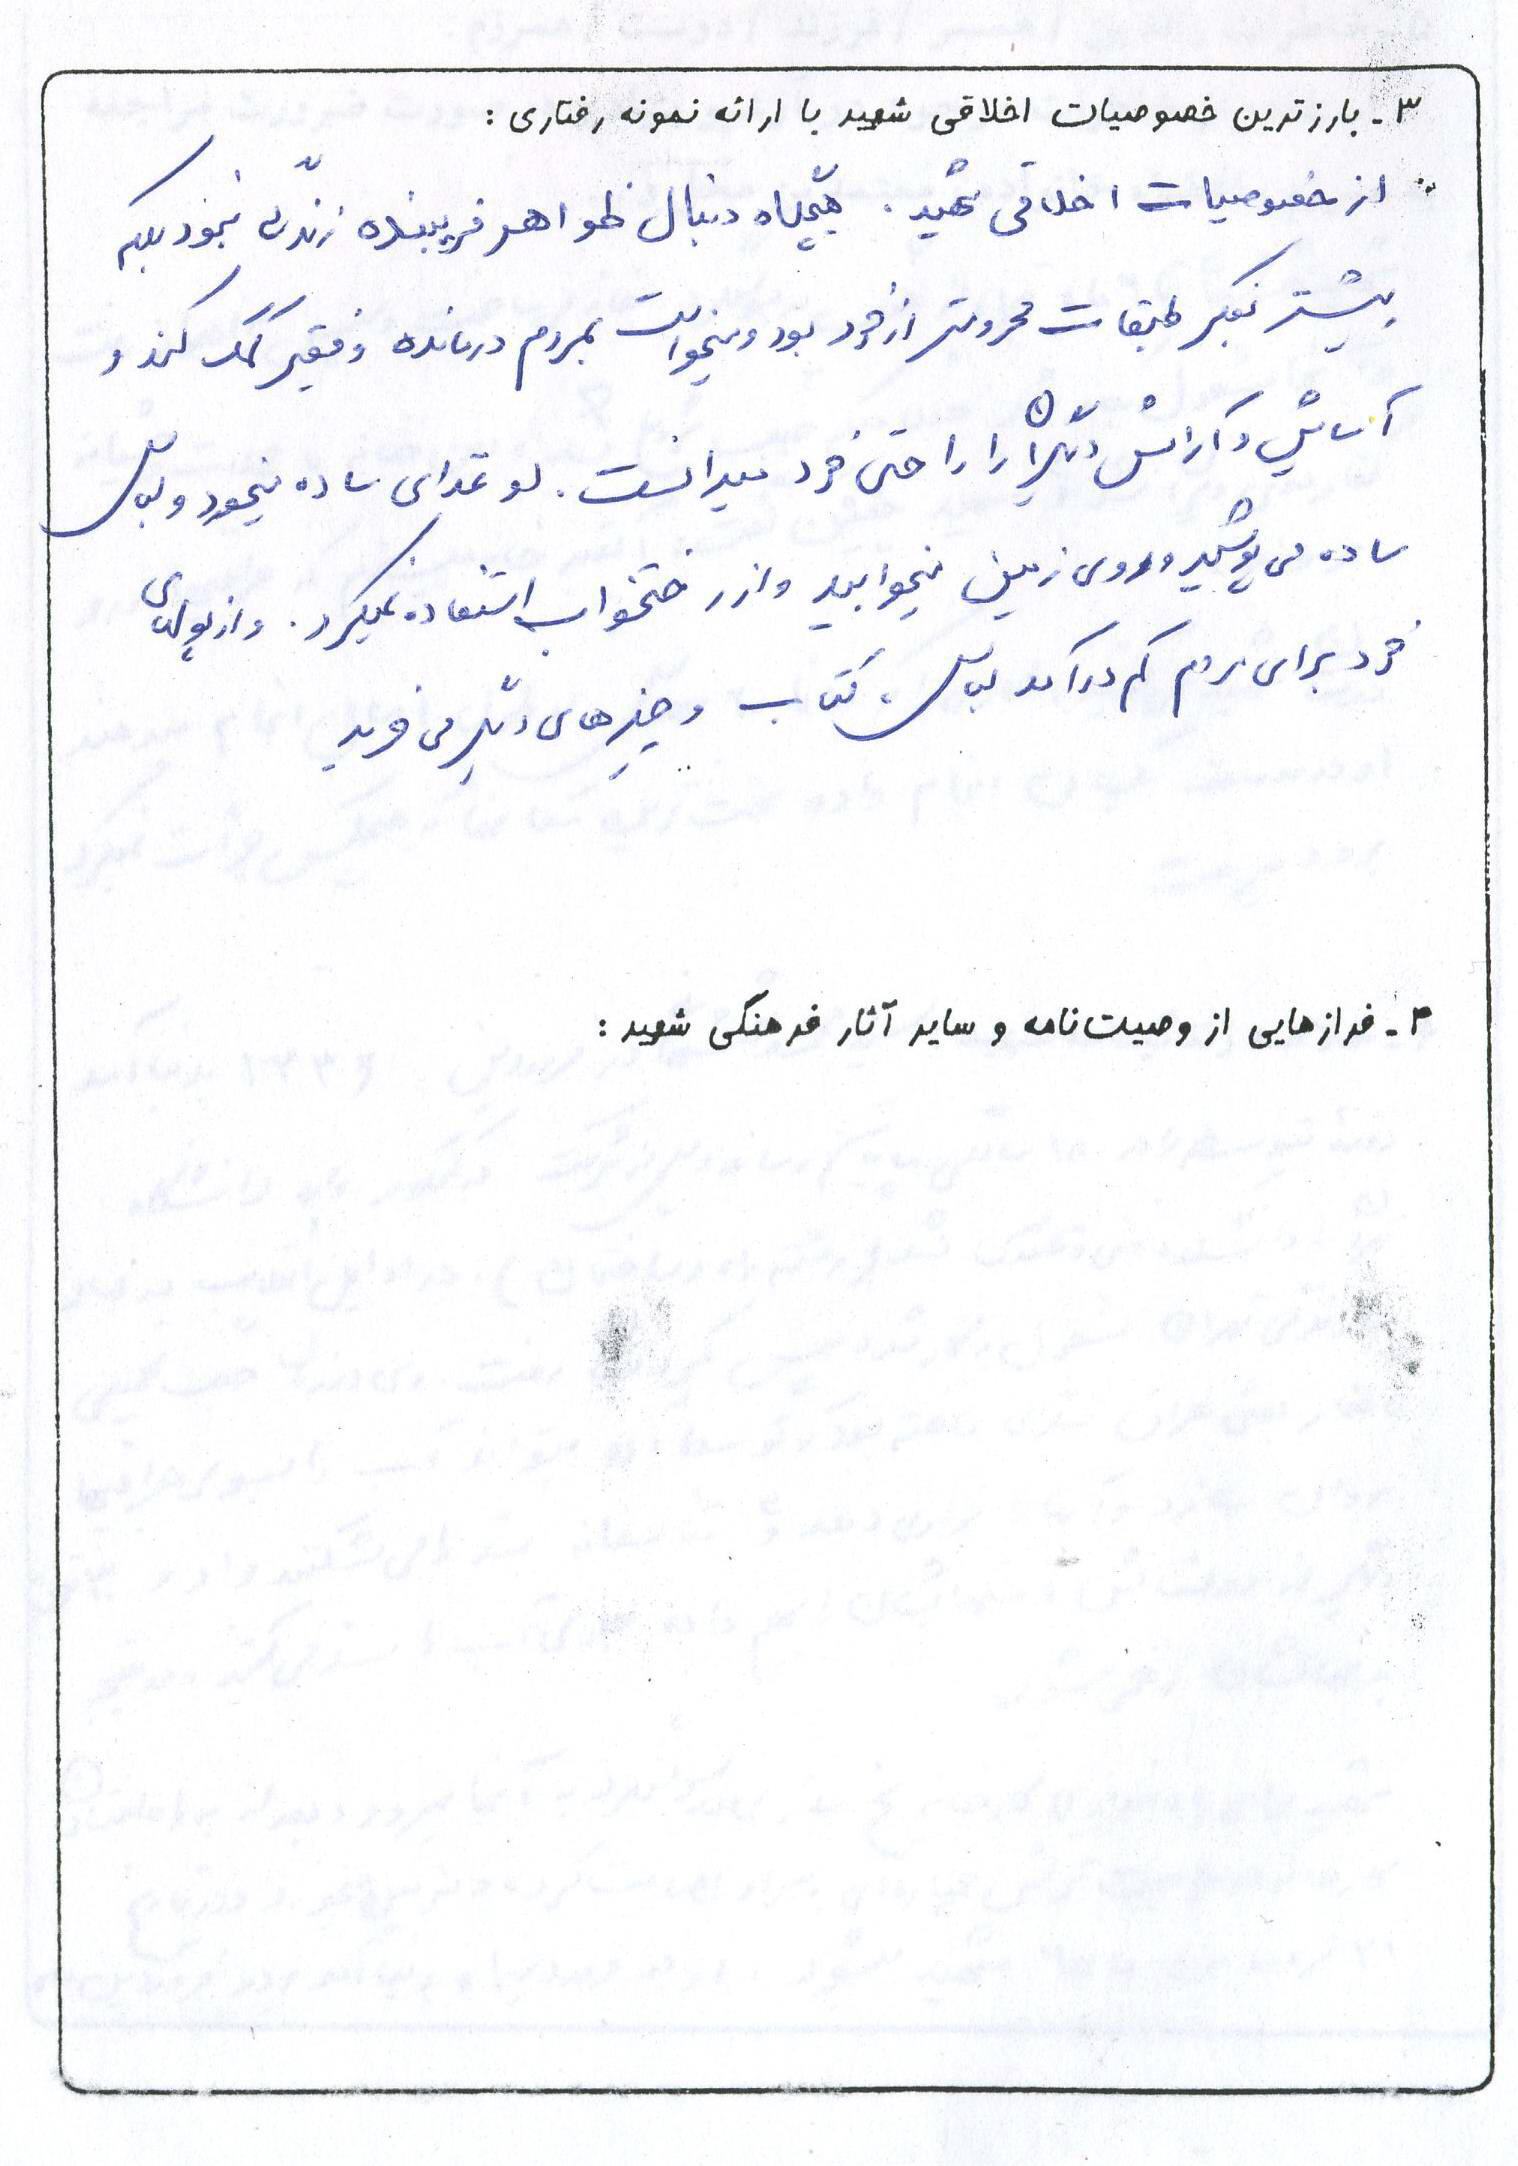 ۳ـ بارزترین خصوصیات اخلاقی شهید با ارائه نمونه رفتاری :
از خصوصیات اخلاقی شهید . هیچگاه دنبال ظواهر فریبنده زندگی نبود بلکه
بیشتر بفکر طبقات محرومتر از خود بود و میخواست بمردم درمانده و فقیر کمک کند و
آسایش و آرامش دیگران را راحتی خود میدانست . او غذای ساده میخورد و لباس
ساده می پوشید و روی زمین میخوابید و از رختخواب استفاده نمیکرد . و از پولهای
خود برای مردم کم درآمد لباس ، کتاب و چیزهای دیگر می خرید
۴ـ فرازهایی از وصیت‌نامه و سایر آثار فرهنگی شهید :